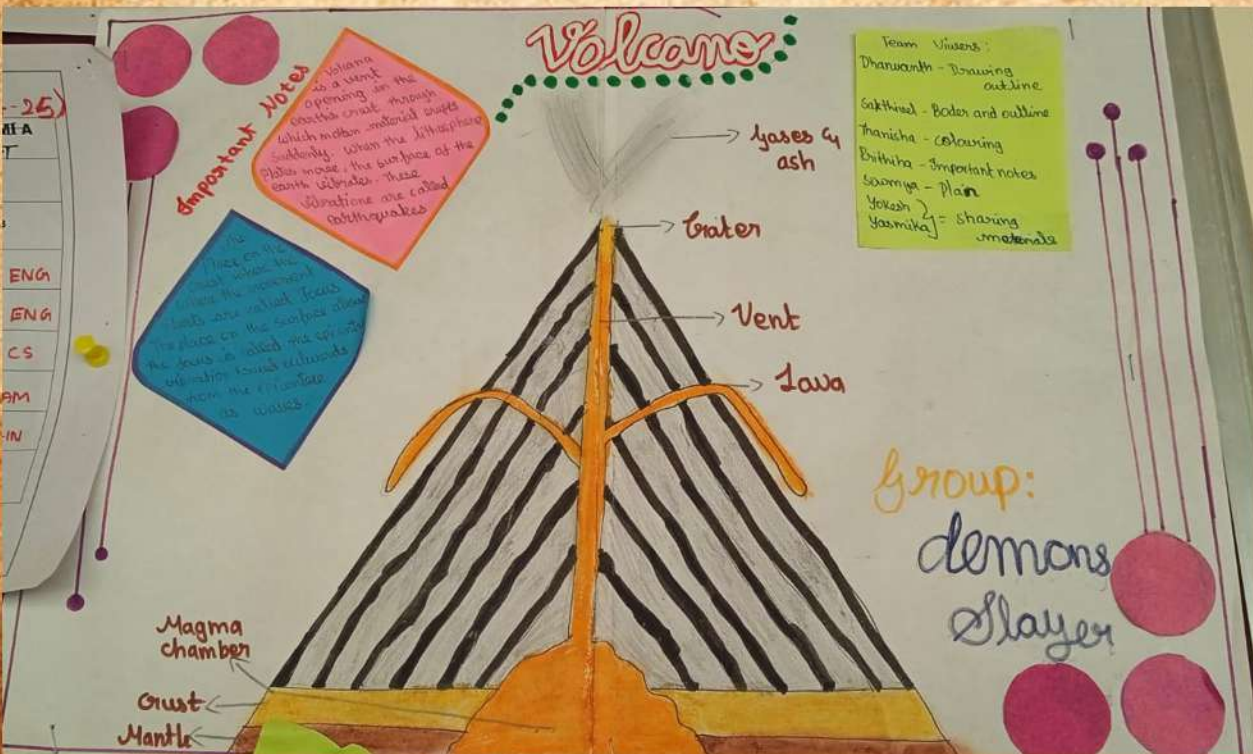 Volcano
-25)
ENG
ENG
CS
AM
-IN
Important Notes
Volcana
is a vent
opening in the
earths crust through
which molten material erupts
Suddenly. When the lithospheric
plates move, the surface of the
earth vibrates. These
vibrations are called
earthquakes
The
Place on the
crust where the
where the movement
starts are called focus
The place on the surface above
the focus is called the epicentre
vibration travel outwards
from the epicentre
as waves.
Gases &
ash
Crater
Vent
Lava
Magma
chamber
Crust
Mantle
Team Viwers:
Dhanwanth - Drawing
outline
Sakthivel - Boder and outline
Thanisha - colouring
Brithiha - Important notes
Sowmya - Plain
Yokesh
Yasmika } = sharing
materials
Group:
demons
Slayer